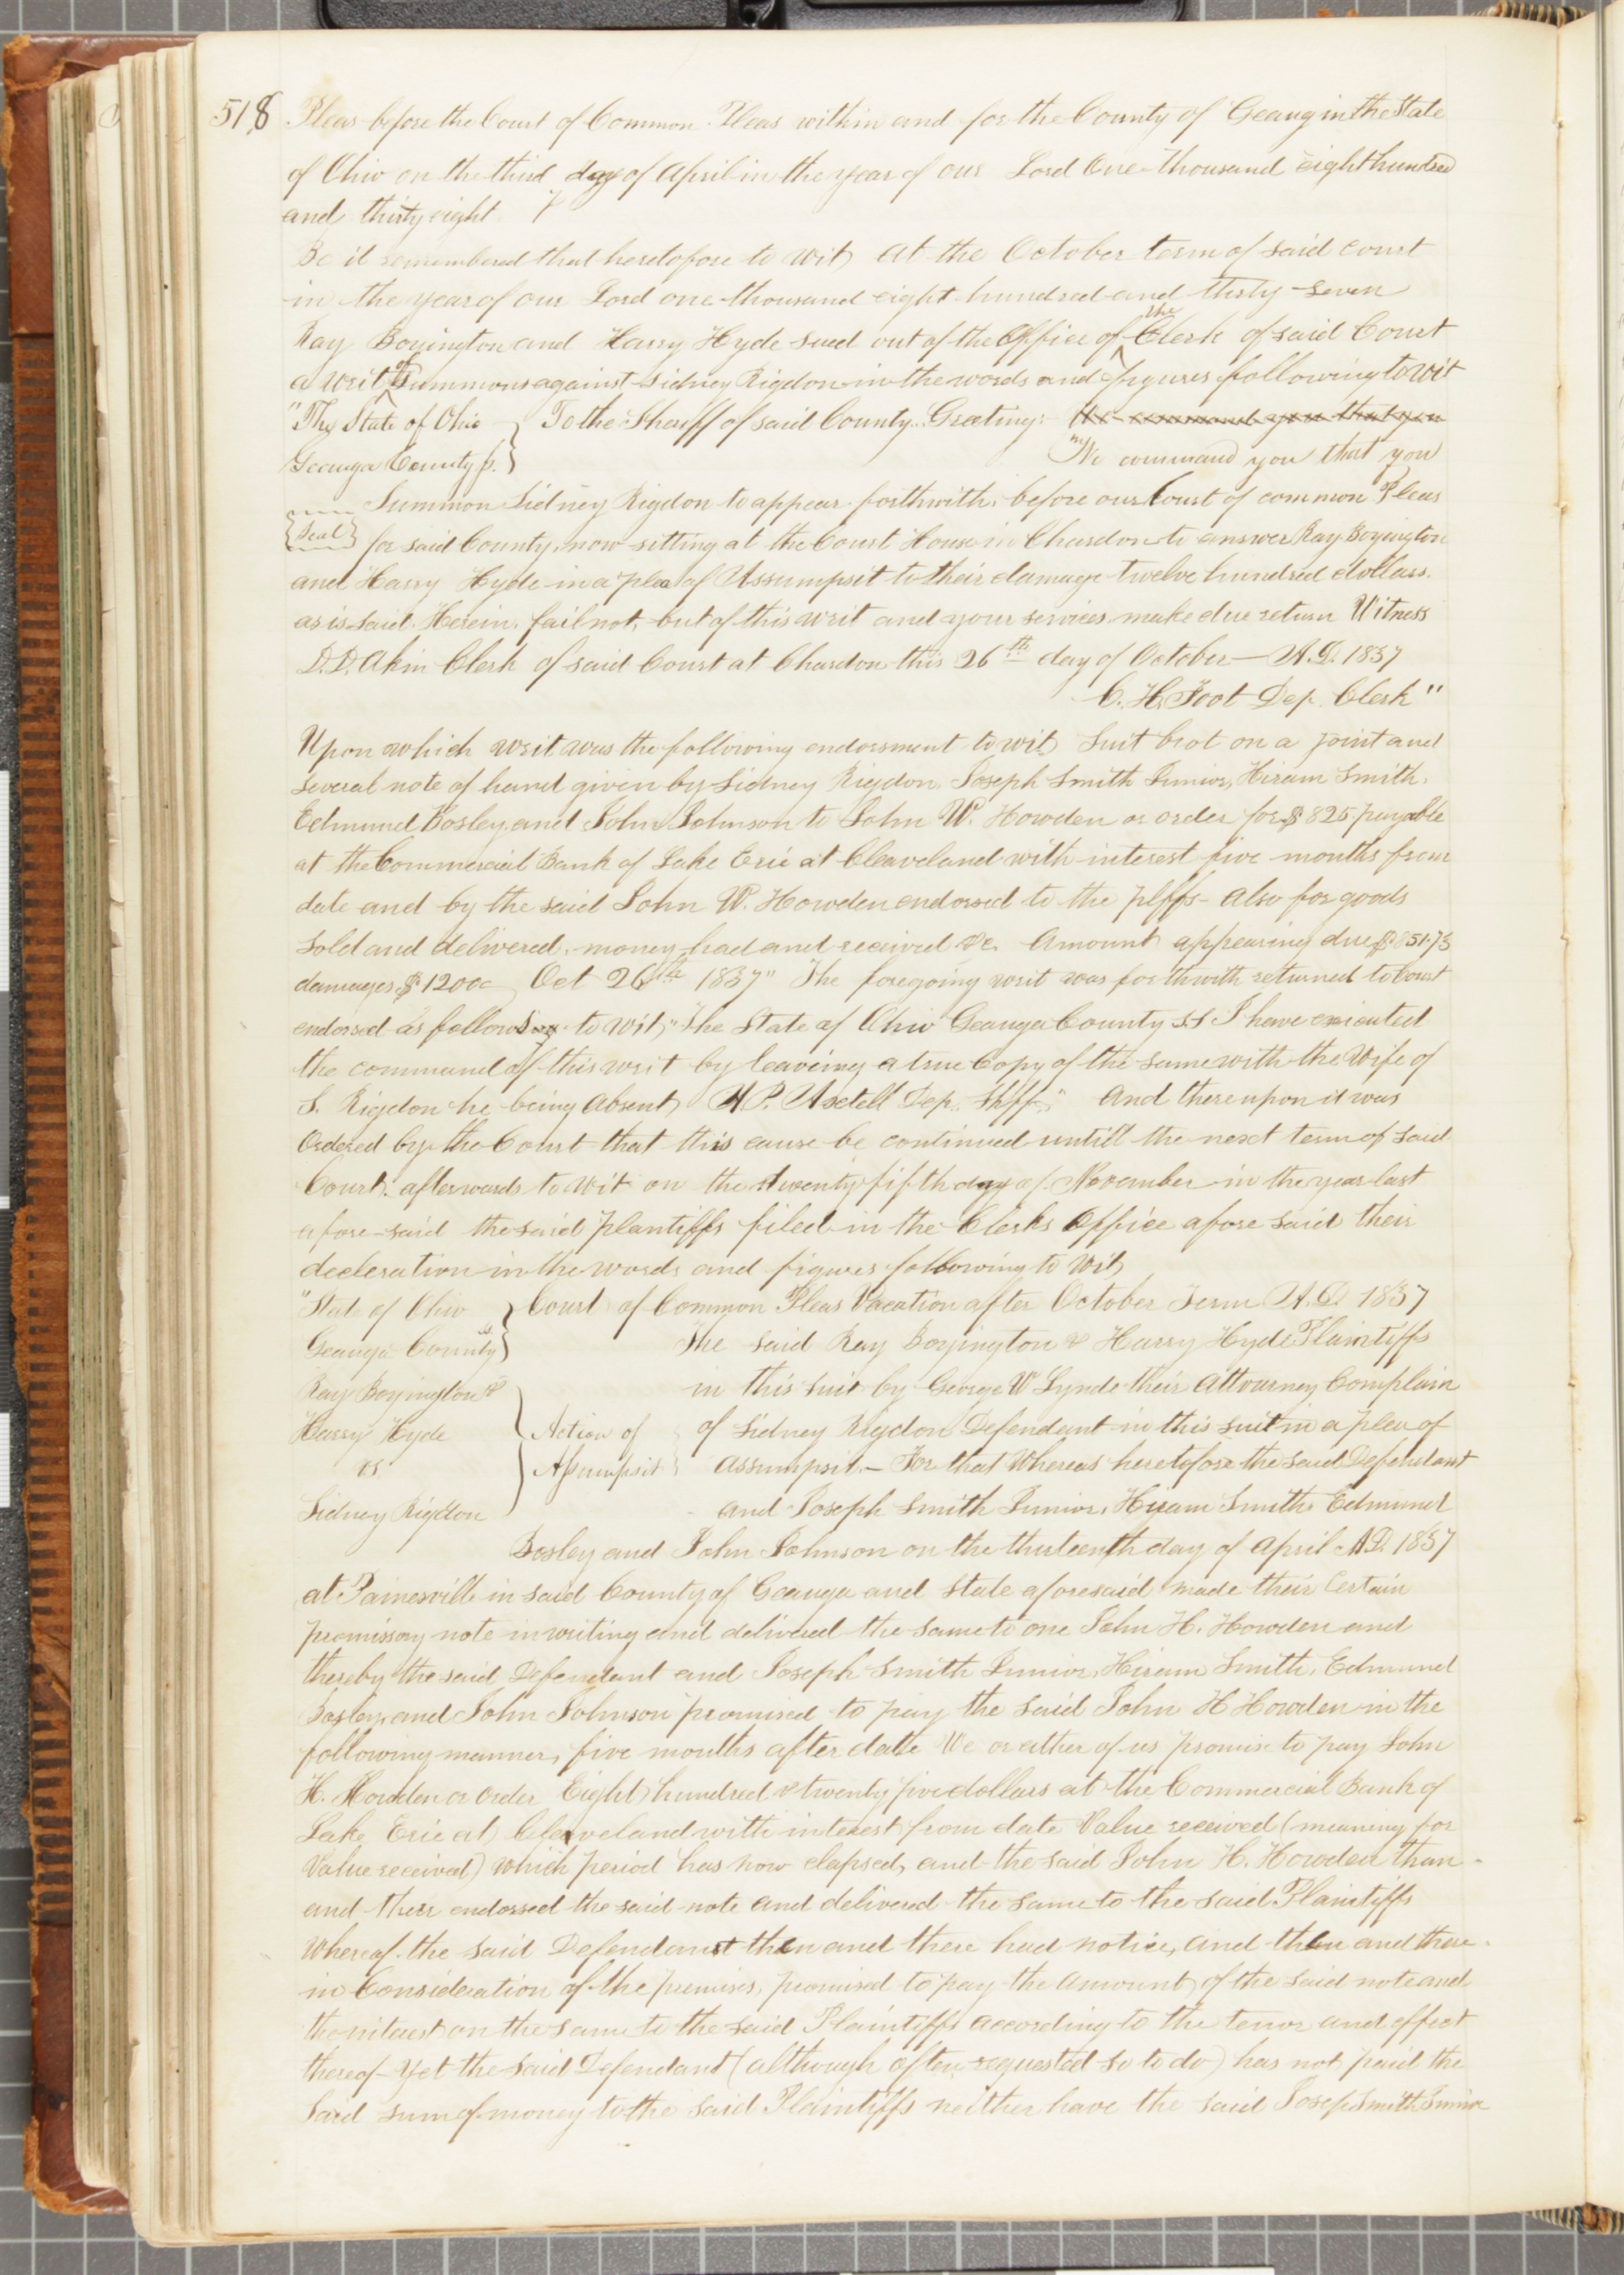 518 Pleas before the Court of Common Pleas within and for the County of Geaug in the State
of Ohio on the third day of April in the year of our Lord One thousand eight hundred
and thirty eight
Be it remembered that heretofore to wit, at the October term of said court
in the year of our Lord one thousand eight hundred and thirty-seven
Ray Boyington and Harry Hyde sued out of the Office of the Clerk of said Court
a writ of Summons against Sidney Rigdon in the words and figures following to wit
"The State of Ohio } To the Sheriff of said County. Greeting: We command you that you
Geauga County ss. } We command you that you
Summon Sidney Rigdon to appear forthwith before our Court of common Pleas
{Seal} for said County, now sitting at the Court House in Chardon to answer Ray Boyington
and Harry Hyde in a plea of Assumpsit to their damage twelve hundred dollars.
as is said. Herein. fail not, but of this writ and your services make due return Witness
D. D. Akin Clerk of said Court at Chardon this 26th day of October — A.D. 1837
C. H. Foot Dep. Clerk"
Upon which writ was the following endorsment to wit, Suit brot on a joint and
several note of hand given by Sidney Rigdon, Joseph Smith Junior, Hiram Smith.
Edmund Bosley, and John Johnson to John W. Howden or order for $825 payable
at the Commercial Bank of Lake Erie at Cleaveland with interest five months from
date and by the said John W. Howden endorsed to the plffs - also for goods
sold and delivered, money had and received &c. Amount appearing due $851.73
damages $1200 Oct 26th 1837" The foregoing writ was forthwith returned to Court
endorsed as follows to wit, "The State of Ohio Geauga County SS I have executed
the command of this writ by leaving a true Copy of the same with the Wife of
S. Rigdon he being absent, P. Axtell Dep. Shff." And thereupon it was
Ordered by the Court that this cause be continued untill the next term of said
Court. afterwards to wit on the twenty fifth day of November in the year last
afore-said the said plantiffs filed in the Clerks Office afore said their
decleration in the words and figures following to wit,
"State of Ohio } Court of Common Pleas Vacation after October Term A.D. 1837
Geauga County ss } The said Ray Boyington & Harry Hyde Plaintiffs
Ray Boyington & in this suit by George W Lynde their attourney Complain
Harry Hyde } Action of } of Sidney Rigdon Defendant in this suit in a plea of
vs. } Assumpsit } assumpsit. — For that Whereas heretofore the said Defendant
Sidney Rigdon and Joseph Smith Junior, Hiram Smith, Edmund
Bosley and John Johnson on the thirteenth day of April A.D. 1837
at Painesville in said County of Geauga and State aforesaid made their Certain
promissory note in writing and delivered the same to one John H. Howden and
thereby the said Defendant and Joseph Smith Junior, Hiram Smith, Edmund
Bosley, and John Johnson promised to pay the said John H Howden in the
following manner, five months after date We or either of us promise to pay John
H. Howden or order Eight hundred & twenty five dollars at the Commercial Bank of
Lake Erie at Cleaveland with interest from date Value received (meaning for
Value received) which period has now elapsed, and the said John H. Howden than
and there endorsed the said note and delivered the same to the said Plaintiffs
Whereof the said Defendant then and there had notice, and then and there
in Consideration of the premises, promised to pay the amount of the said note and
the interest on the same to the said Plaintiffs according to the tenor and effect
thereof - Yet the said Defendant (although often requested so to do) has not paid the
said sum of money to the said Plaintiffs neither have the said Josep Smith Junior